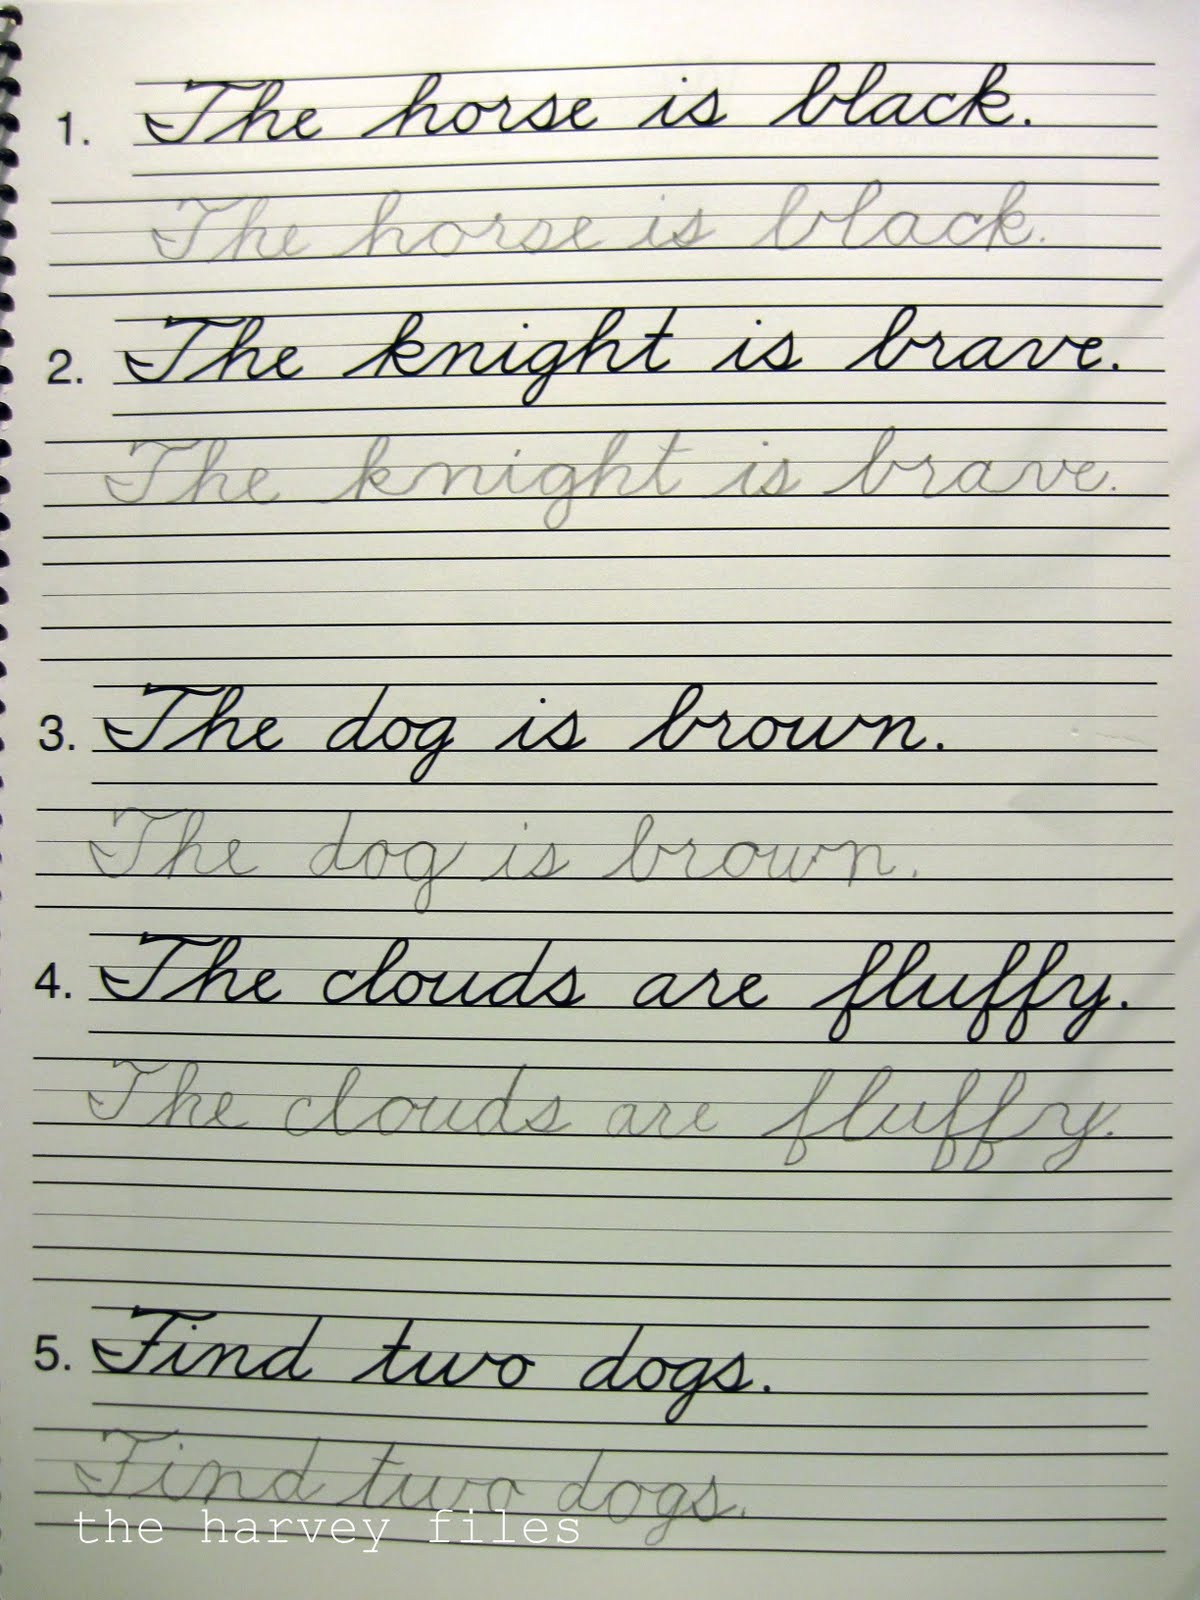 1. The horse is black.
The horse is black.
2. The knight is brave.
The knight is brave.
3. The dog is brown.
The dog is brown.
4. The clouds are fluffy.
The clouds are fluffy.
5. Find two dogs.
Find two dogs.
the harvey files